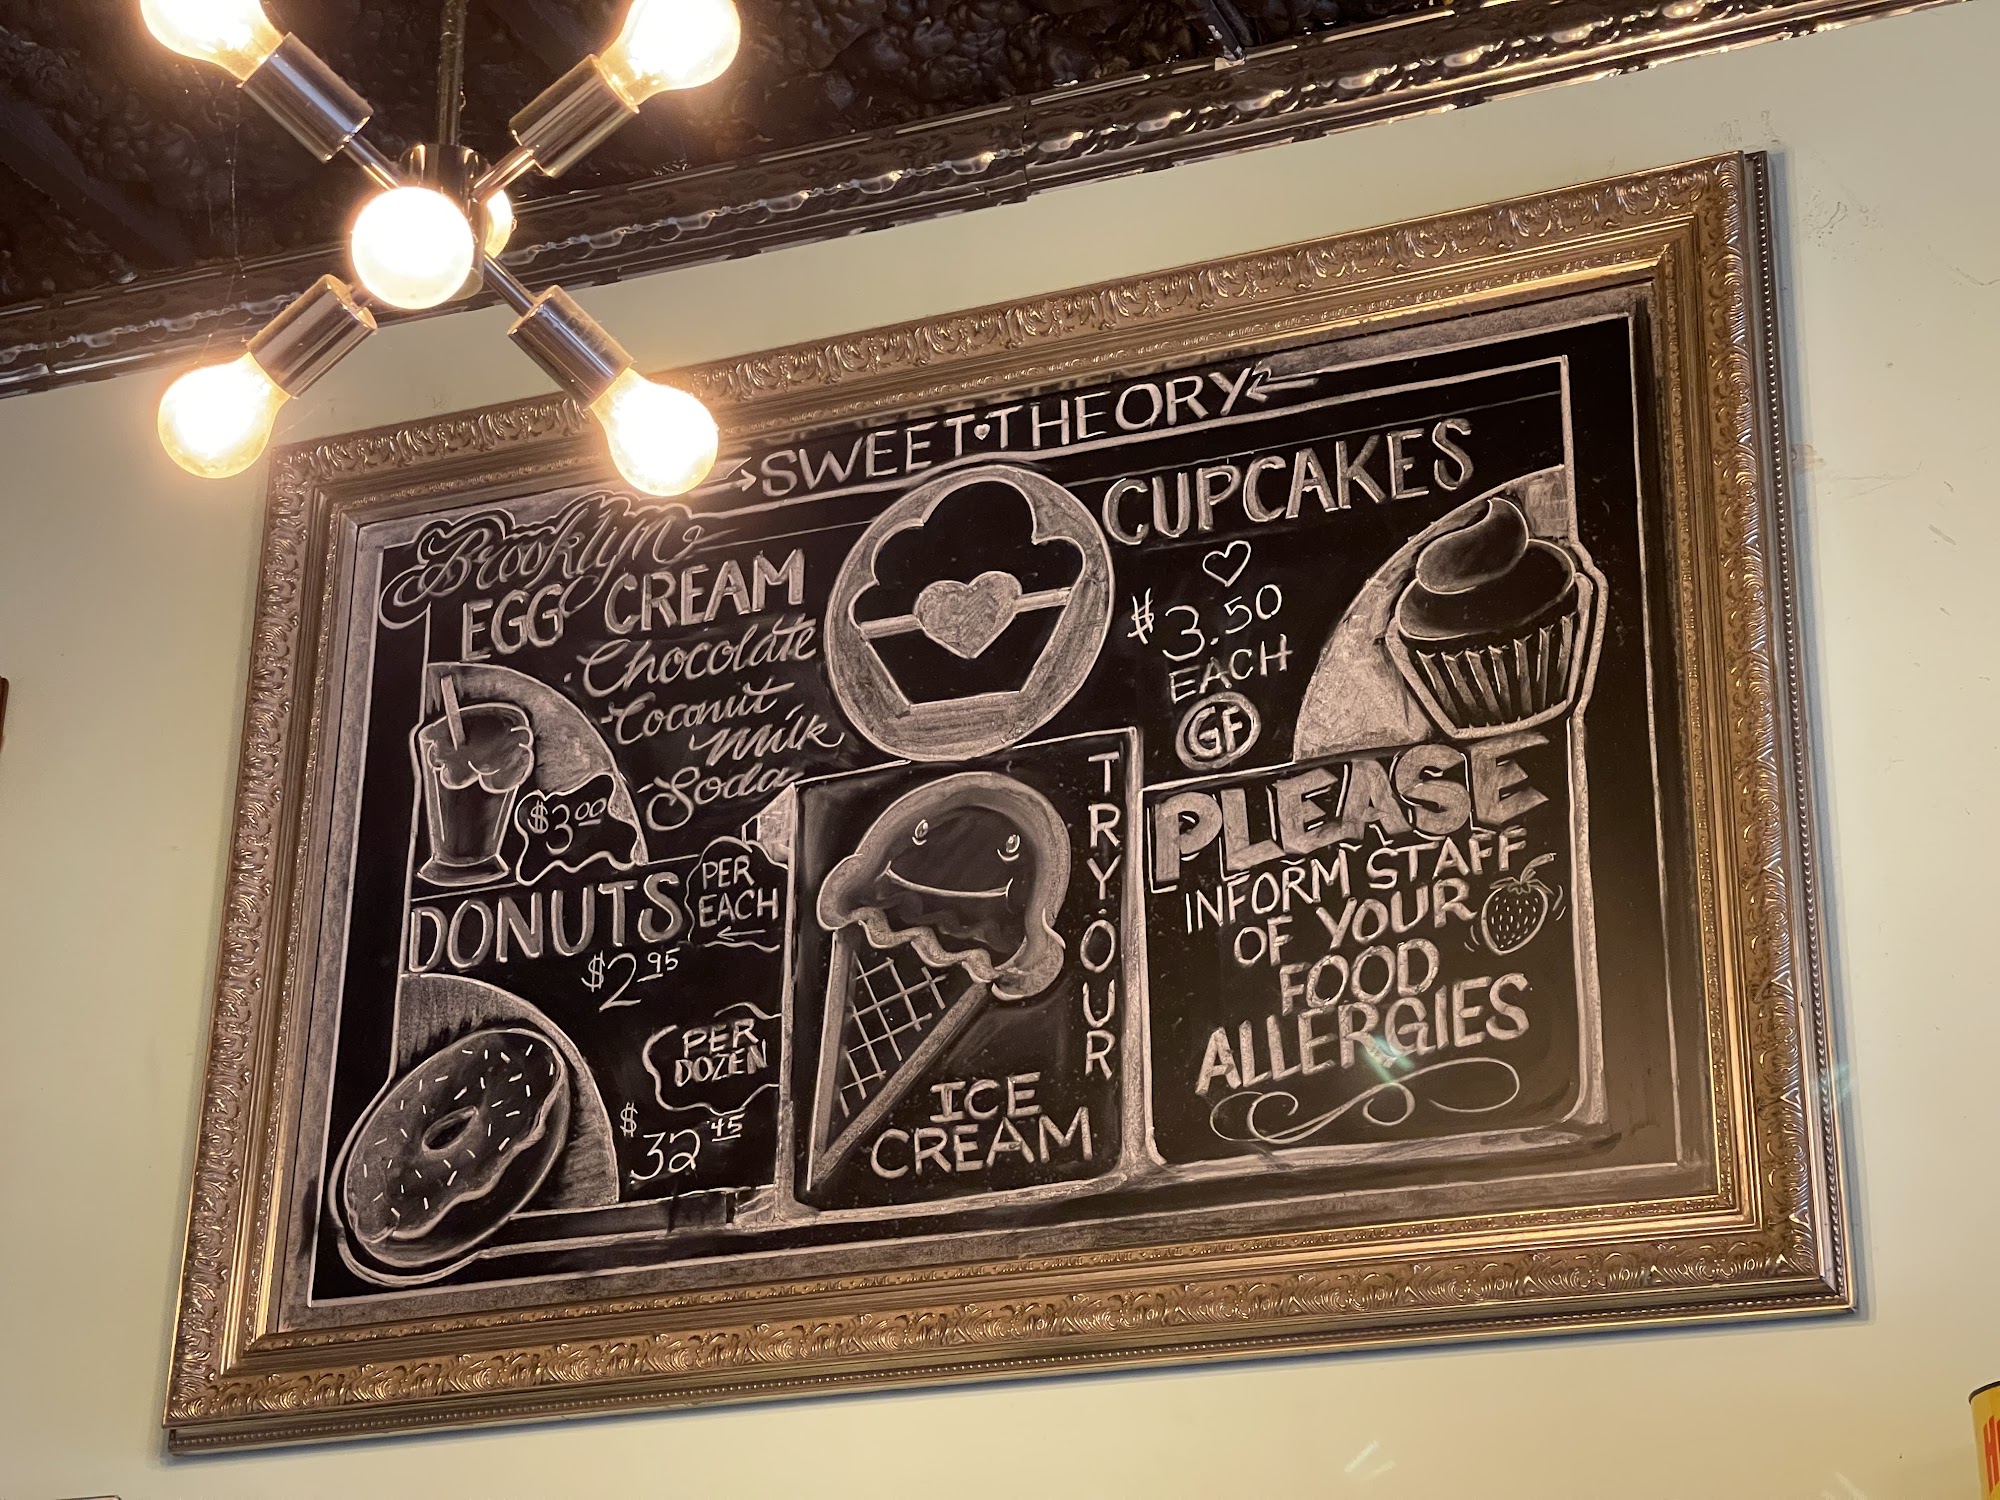 SWEET THEORY
Brooklyn
EGG CREAM
Chocolate
Coconut
Milk
Soda
$3.00
DONUTS
PER
EACH
$2.95
PER
DOZEN
$32.45
CUPCAKES
$3.50
EACH
GF
TRY OUR
ICE
CREAM
PLEASE
INFORM STAFF
OF YOUR
FOOD
ALLERGIES